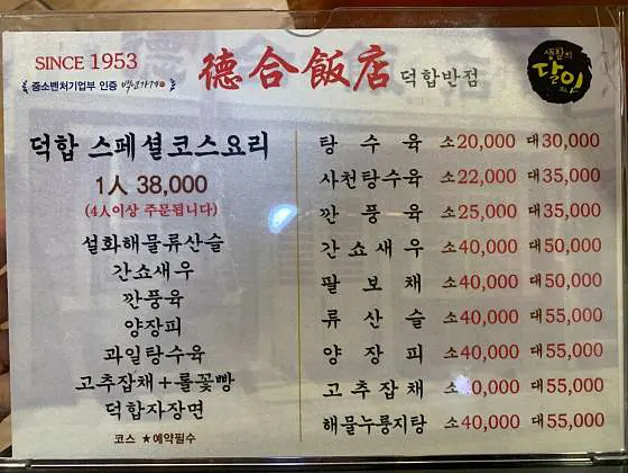 SINCE 1953
중소벤처기업부 인증 백년가게
德合飯店 덕합반점
생활의
달인
덕합 스페셜코스요리
1人 38,000
(4人이상 주문됩니다)
설화해물류산슬
간쇼새우
깐풍육
양장피
과일탕수육
고추잡채+롤꽃빵
덕합자장면
코스 ★예약필수
탕 수 육 소20,000 대30,000
사천탕수육 소22,000 대35,000
깐 풍 육 소25,000 대35,000
간쇼새우 소40,000 대50,000
팔 보 채 소40,000 대50,000
류 산 슬 소40,000 대55,000
양 장 피 소40,000 대55,000
고추잡채 소40,000 대55,000
해물누룽지탕 소40,000 대55,000